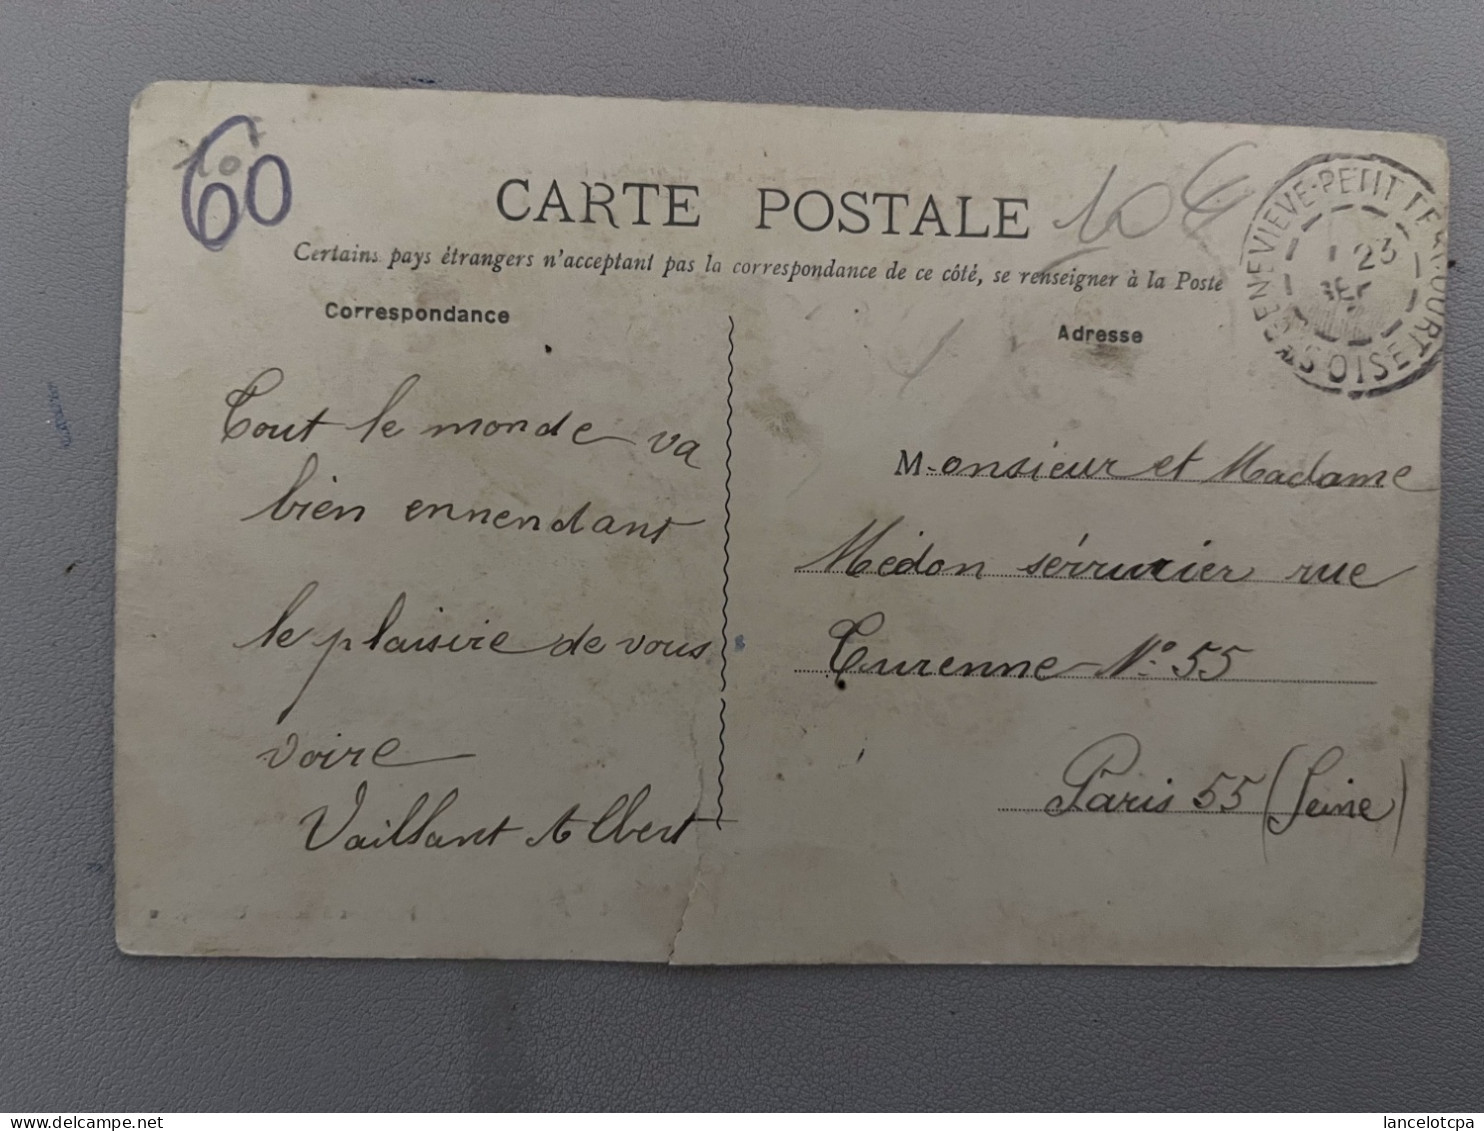 60
CARTE POSTALE
10 €
Certains pays étrangers n'acceptant pas la correspondance de ce côté, se renseigner à la Poste
Correspondance
Tout le monde va
bien ennendant
le plaisire de vous
voire
Vaillant Albert
Adresse
Monsieur et Madame
Médon sérrurier rue
Turenne No. 55
Paris 55 (Seine)
GENEVIEVE-PETIT
23
OISE
lancelotcpa